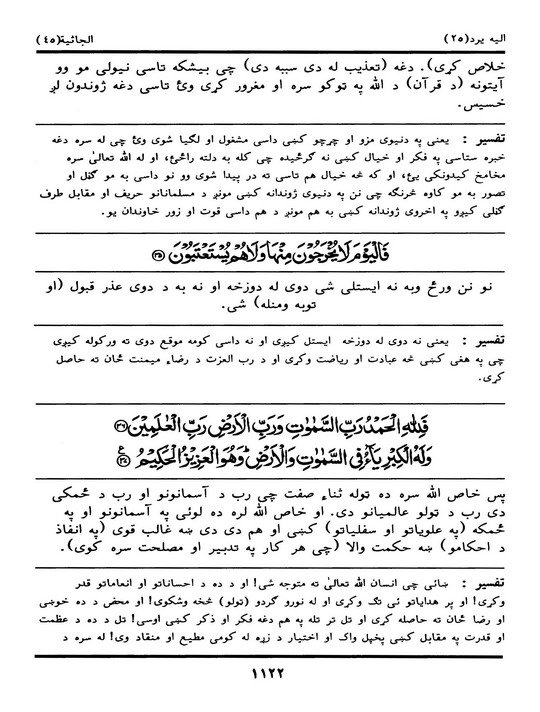 الیه یرد(۲۵) الجاثیة(۴۵)
خلاص کړی). دغه (تعذیب له دی سببه دی) چی بیشکه تاسی نیولی مو وو
آیتونه (د قرآن) د الله په ټوکو سره او مغرور کړی وئ تاسی دغه ژوندون لږ
خسیس.
تفسیر : یعنی په دنیوی مزو او چرچو کښی داسی مشغول او لګیا شوی وئ چی له سره دغه
خبره ستاسی په فکر او خیال کښی نه ګرځیده چی کله به دلته راځئ، او له الله تعالیٰ سره
مخامخ کیدونکی یئ، او که څه خیال هم تاسی ته در پیدا شوی وو نو داسی به مو ګڼل او
تصور به مو کاوه څرنګه چی نن په دنیوی ژوندانه کښی مونږ د مسلمانانو حریف او مقابل طرف
ګڼلی کیږو په اخروی ژوندانه کښی به هم مونږ د هم داسی قوت او زور خاوندان یو.
فَالْيَوْمَ لَا يُخْرَجُوْنَ مِنْهَا وَلَا هُمْ يُسْتَعْتَبُوْنَ ﴿۳۵﴾
نو نن ورځ وبه نه ایستلی شی دوی له دوزخه او نه به د دوی عذر قبول (او
توبه ومنله) شی.
تفسیر : یعنی نه دوی له دوزخه ایستل کیږی او نه داسی کومه موقع دوی ته ورکوله کیږی
چی په هغی کښی څه عبادت او ریاضت وکړی او د رب العزت د رضاء میمنت ځان ته حاصل
کړی.
فَلِلّٰهِ الْحَمْدُ رَبِّ السَّمٰوٰتِ وَرَبِّ الْاَرْضِ رَبِّ الْعٰلَمِيْنَ ﴿۳۶﴾
وَلَهُ الْكِبْرِيَآءُ فِي السَّمٰوٰتِ وَالْاَرْضِ وَهُوَ الْعَزِيْزُ الْحَكِيْمُ ﴿۳۷﴾
پس خاص الله سره ده ټوله ثناء صفت چی رب د آسمانونو او رب د ځمکی
دی رب د ټولو عالمیانو دی. او خاص الله لره ده لوئی په آسمانونو او په
ځمکه (په علویاتو او سفلیاتو) کښی او هم دی دی ښه غالب قوی (په انفاذ
د احکامو) ښه حکمت والا (چی هر کار په تدبیر او مصلحت سره کوی).
تفسیر : ښائی چی انسان الله تعالیٰ ته متوجه شی! او د ده د احساناتو او انعاماتو قدر
وکړی! او پر هدایاتو ئی تګ وکړی او له نورو ګردو (ټولو) څخه وشکوی! او محض د ده خوښی
او رضا ځان ته حاصله کړی او تل تر تله په هم دغه فکر او ذکر کښی اوسی! تل د ده د عظمت
او قدرت په مقابل کښی پخپل واک او اختیار د زړه له کومی مطیع او منقاد وی! له سره د
۱۱۲۲